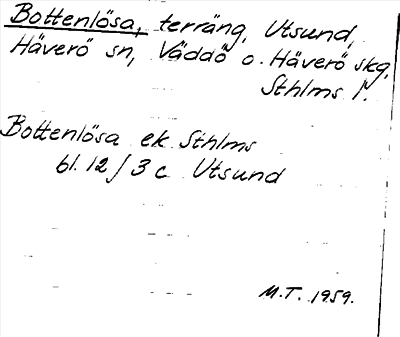 Bottenlösa, terräng, Utsund,
Häverö sn, Väddö o. Häverö skg,
Sthlms l.
Bottenlösa ek Sthlms
bl. 12 / 3 c Utsund
M.T. 1959.